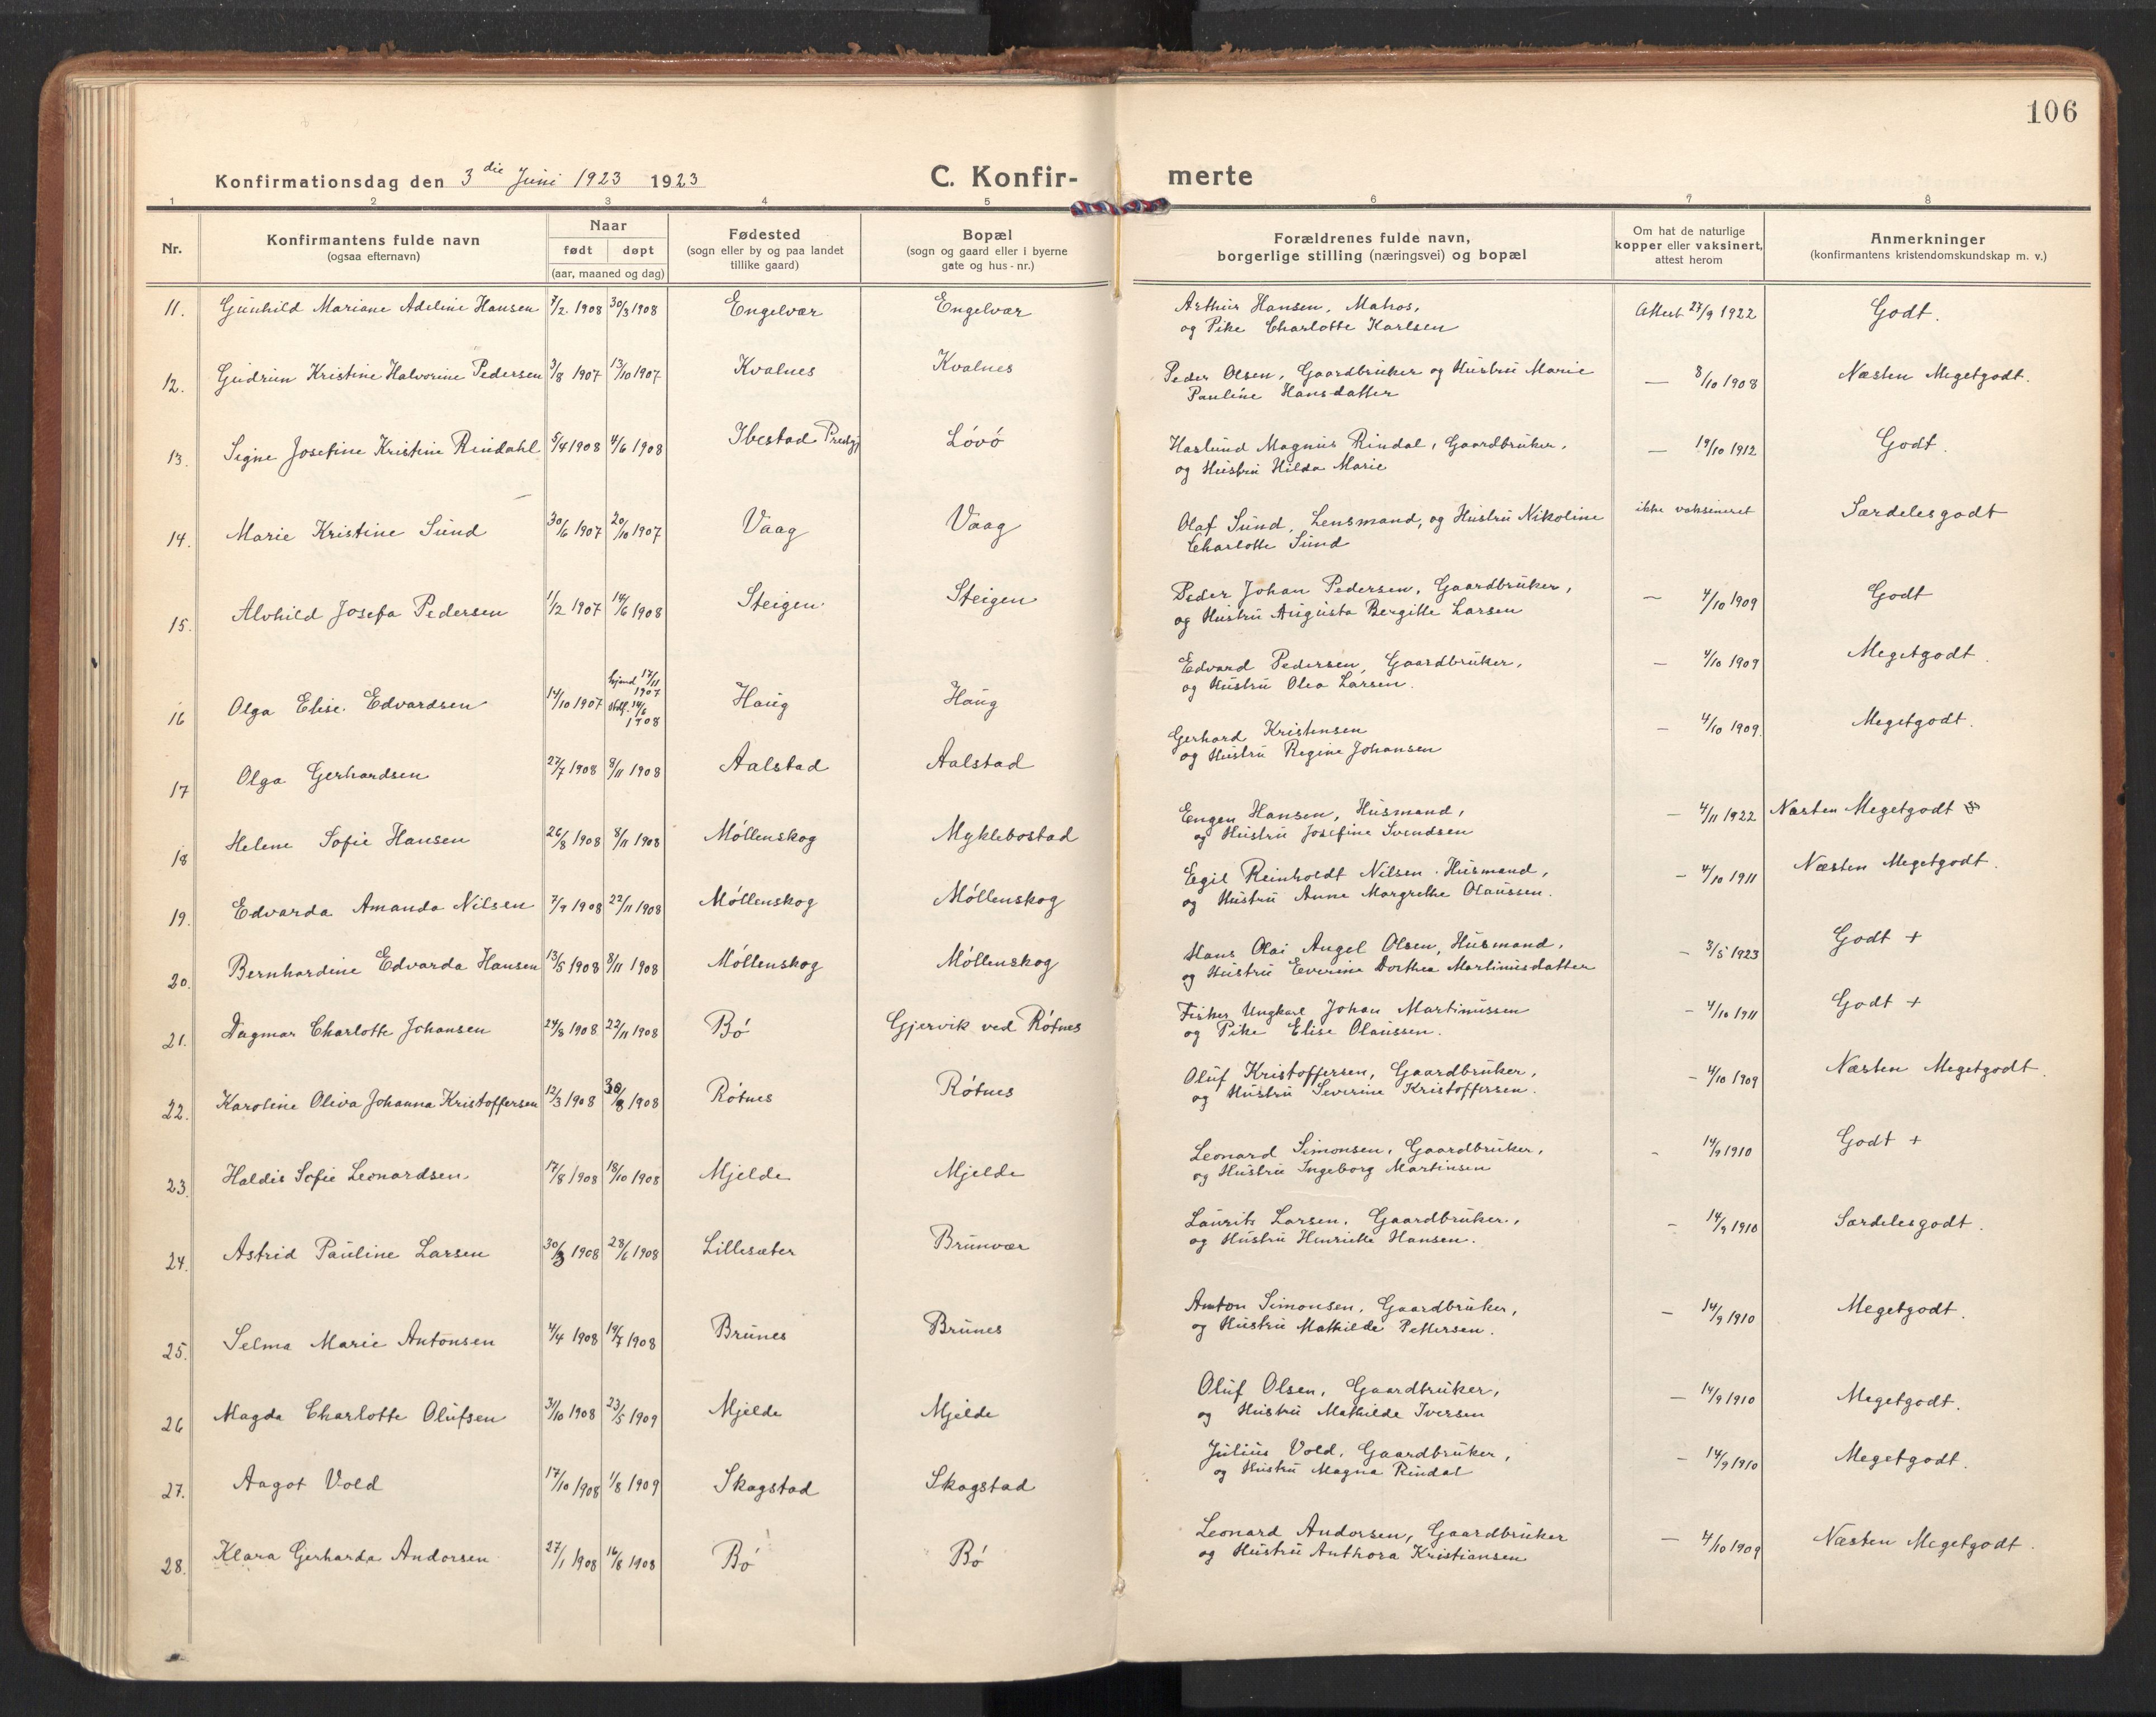 106
Konfirmationsdag den 3die Juni 1923 1923
C. Konfir- merte
1 2 3 4 5 6 7 8
Nr.
Konfirmantens fulde navn
(ogsaa efternavn)
Naar
født døpt
(aar, maaned og dag)
Fødested
(sogn eller by og paa landet
tillike gaard)
Bopæl
(sogn og gaard eller i byerne
gate og hus-nr.)
Forældrenes fulde navn,
borgerlige stilling (næringsvei) og bopæl
Om hat de naturlige
kopper eller vaksinert,
attest herom
Anmerkninger
(konfirmantens kristendomskundskap m. v.)
11. Gunhild Mariane Adeline Hansen 7/2 1908 30/3 1908 Engelvær Engelvær Arthur Hansen, Matros, Attest 27/9 1922 Godt.
og Pike Charlotte Karlsen
12. Gudrun Kristine Halvorine Pedersen 3/8 1907 13/10 1907 Kvalnes Kvalnes Peder Olsen, Gaardbruker og Hustru Marie — 8/10 1908 Næsten Megetgodt.
Pauline Hansdatter
13. Signe Josefine Kristine Rindahl 5/4 1908 4/6 1908 Ibestad Prestgj Lóvó Haslund Magnus Rindal, Gaardbruker, — 19/10 1912 Godt.
og Hustru Hilda Marie
14. Marie Kristine Sund 30/6 1907 20/10 1907 Vaag Vaag Olaf Sund, Lensmand, og Hustru Nikoline ikke vaksineret Særdelesgodt
Charlotte Sund
15. Alvhild Josefa Pedersen 1/2 1907 14/6 1908 Steigen Steigen Peder Johan Pedersen, Gaardbruker, — 4/10 1909 Godt
og Hustru Augusta Bergitte Larsen
16 Olga Elise Edvardsen 14/10 1907 hjemd 17/11 1907 Stadf. 14/6 1908 Haug Haug Edvard Pedersen, Gaardbruker, — 4/10 1909 Megetgodt.
og Hustru Olea Larsen.
17 Olga Gerhardsen 27/7 1908 8/11 1908 Aalstad Aalstad Gerhard Kristensen — 4/10 1909 Megetgodt.
og Hustru Regine Johansen
18 Helene Sofie Hansen 26/8 1908 8/11 1908 Móllenskog Myklebostad Engen Hansen, Husmand, — 4/11 1922 Næsten Megetgodt
og Hustru Josefine Svendsen
19. Edvarda Amanda Nilsen 7/9 1908 22/11 1908 Móllenskog Móllenskog Egil Reinholdt Nilsen. Husmand, — 4/10 1911 Næsten Megetgodt.
og Hustru Anne Margrethe Olaussen.
20. Bernhardine Edvarda Hansen 13/5 1908 8/11 1908 Móllenskog Móllenskog Hans Olai Angel Olsen, Husmand, — 3/5 1923 Godt +
og Hustru Everine Dorthea Martinusdatter
21. Dagmar Charlotte Johansen 24/8 1908 22/11 1908 Bó Gjervik ved Rótnes Fisker Ungkarl Johan Martinussen — 4/10 1911 Godt +
og Pike Elise Olaussen.
22. Karoline Oliva Johanna Kristoffersen 12/3 1908 30/8 1908 Rótnes Rótnes Oluf Kristoffersen, Gaardbruker, — 4/10 1909 Næsten Megetgodt.
og Hustru Severine Kristoffersen.
23. Haldis Sofie Leonardsen 17/8 1908 18/10 1908 Mjelde Mjelde Leonard Simonsen, Gaardbruker, - 14/9 1910 Godt +
og Hustru Ingeborg Martinsen
24. Astrid Pauline Larsen 30/3 1908 28/6 1908 Lillesæter Brunvær Laurits Larsen, Gaardbruker, - 14/9 1910 Særdelesgodt.
og Hustru Henrikke Hansen.
25. Selma Marie Antonsen 4/4 1908 19/7 1908 Brunes Brunes Anton Simonsen, Gaardbruker, — 14/9 1910 Megetgodt.
og Hustru Mathilde Pettersen.
26 Magda Charlotte Olufsen 31/10 1908 23/5 1909 Mjelde Mjelde Oluf Olsen, Gaardbruker, — 14/9 1910 Megetgodt.
og Hustru Mathilde Iversen
27. Aagot Vold 17/10 1908 1/8 1909 Skagstad Skagstad Julius Vold, Gaardbruker, — 14/9 1910 Megetgodt.
og Hustru Magna Rindal
28. Klara Gerharda Andorsen 27/1 1908 16/8 1908 Bó Bó Leonard Andorsen, Gaardbruker — 4/10 1909 Næsten Megetgodt.
og Hustru Anthora Kristiansen